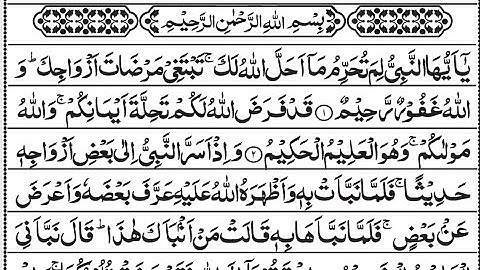 بِسْمِ اللّٰهِ الرَّحْمٰنِ الرَّحِيْمِ
يٰۤاَيُّهَا النَّبِيُّ لِمَ تُحَرِّمُ مَاۤ اَحَلَّ اللّٰهُ لَكَ ۚ تَبْتَغِيْ مَرْضَاتَ اَزْوَاجِكَ ؕ وَ
اللّٰهُ غَفُوْرٌ رَّحِيْمٌ ﴿۱﴾ قَدْ فَرَضَ اللّٰهُ لَكُمْ تَحِلَّةَ اَيْمَانِكُمْ ۚ وَاللّٰهُ
مَوْلٰىكُمْ ۚ وَهُوَ الْعَلِيْمُ الْحَكِيْمُ ﴿۲﴾ وَاِذْ اَسَرَّ النَّبِيُّ اِلٰى بَعْضِ اَزْوَاجِهٖ
حَدِيْثًا ۚ فَلَمَّا نَبَّاَتْ بِهٖ وَاَظْهَرَهُ اللّٰهُ عَلَيْهِ عَرَّفَ بَعْضَهٗ وَاَعْرَضَ
عَنْۢ بَعْضٍ ۚ فَلَمَّا نَبَّاَهَا بِهٖ قَالَتْ مَنْ اَنْۢبَاَكَ هٰذَا ؕ قَالَ نَبَّاَنِيَ